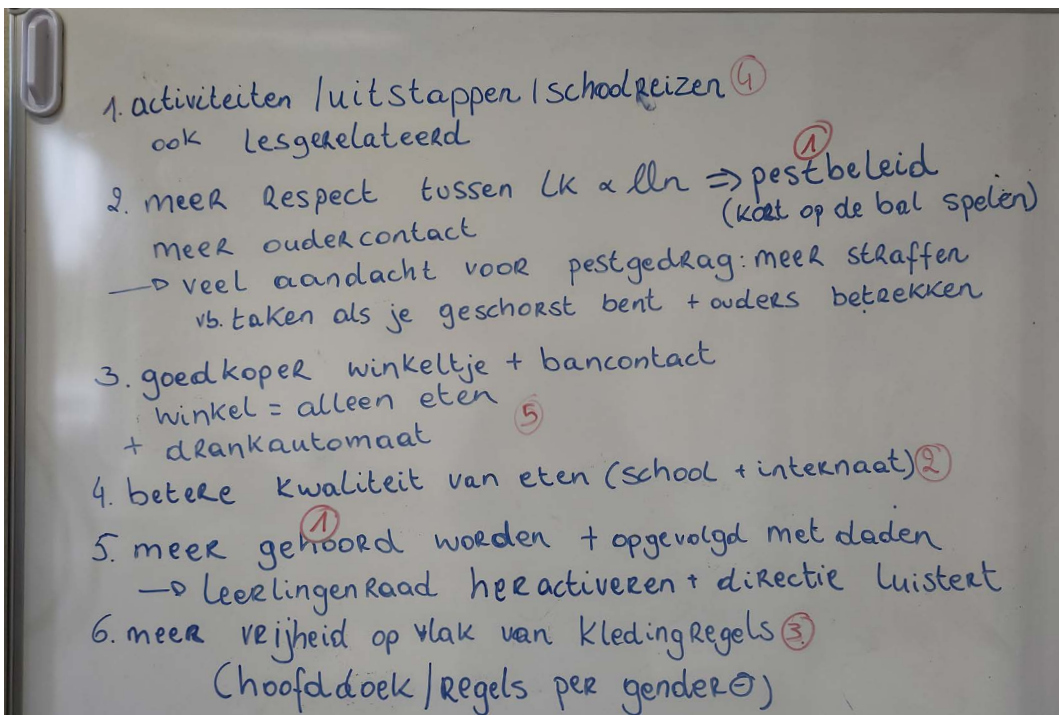 1. activiteiten / uitstappen / schoolreizen ④
ook lesgerelateerd
①
2. meer respect tussen lk & lln ⇒ pestbeleid
(kort op de bal spelen)
meer oudercontact
→ veel aandacht voor pestgedrag: meer straffen
vb. taken als je geschorst bent + ouders betrekken
3. goedkoper winkeltje + bancontact
winkel = alleen eten
⑤
+ drankautomaat
4. betere kwaliteit van eten (school + internaat) ②
①
5. meer gehoord worden + opgevolgd met daden
→ leerlingenraad heractiveren + directie luistert
6. meer vrijheid op vlak van kledingregels ③
(hoofddoek / regels per gender ⊖)